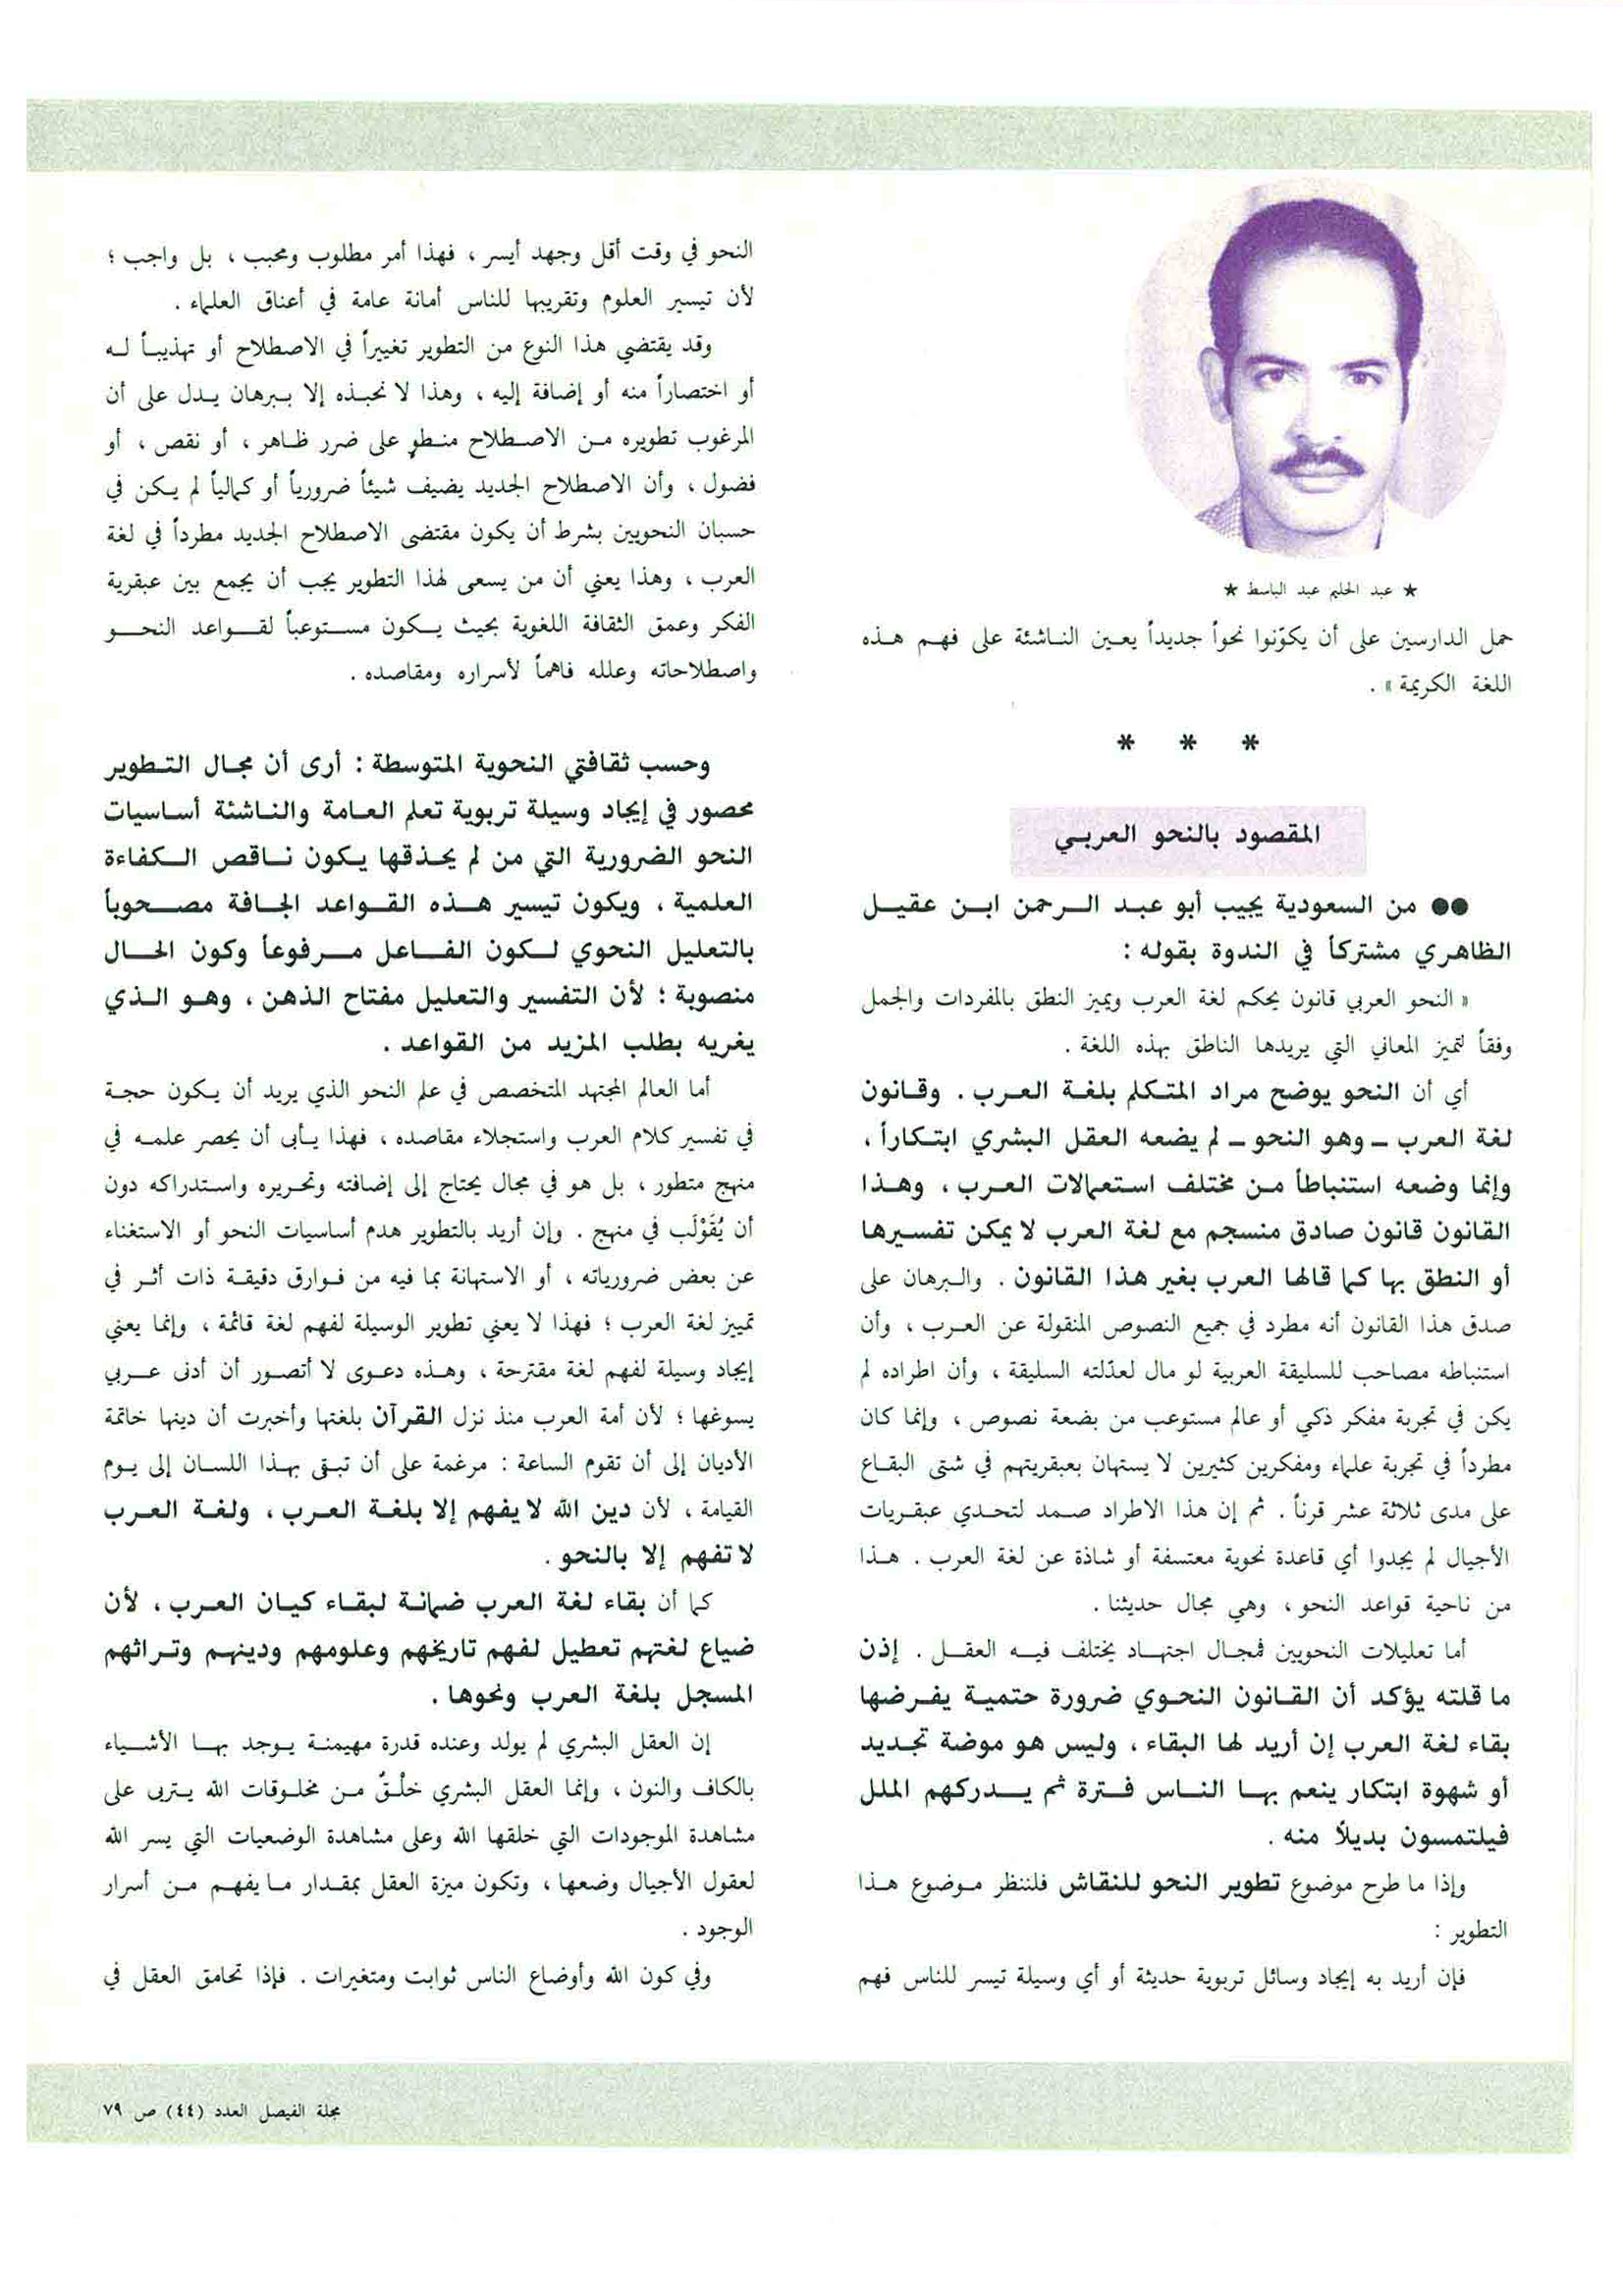 ★ عبد الحليم عبد الباسط ★
حمل الدارسين على أن يكوّنوا نحواً جديداً يعين الناشئة على فهم هذه
اللغة الكريمة » .
* * *
المقصود بالنحو العربي
●● من السعودية يجيب أبو عبد الرحمن ابن عقيل
الظاهري مشتركاً في الندوة بقوله :
« النحو العربي قانون يحكم لغة العرب ويميز النطق بالمفردات والجمل
وفقاً لتميز المعاني التي يريدها الناطق بهذه اللغة .
أي أن النحو يوضح مراد المتكلم بلغة العرب . وقانون
لغة العرب – وهو النحو – لم يضعه العقل البشري ابتكاراً ،
وإنما وضعه استنباطاً من مختلف استعمالات العرب ، وهذا
القانون قانون صادق منسجم مع لغة العرب لا يمكن تفسيرها
أو النطق بها كما قالها العرب بغير هذا القانون . والبرهان على
صدق هذا القانون أنه مطرد في جميع النصوص المنقولة عن العرب ، وأن
استنباطه مصاحب للسليقة العربية لو مال لعدّلته السليقة ، وأن اطراده لم
يكن في تجربة مفكر ذكي أو عالم مستوعب من بضعة نصوص ، وإنما كان
مطرداً في تجربة علماء ومفكرين كثيرين لا يستهان بعبقريتهم في شتى البقاع
على مدى ثلاثة عشر قرناً . ثم إن هذا الاطراد صمد لتحدي عبقريات
الأجيال لم يجدوا أي قاعدة نحوية معتسفة أو شاذة عن لغة العرب . هذا
من ناحية قواعد النحو ، وهي مجال حديثنا .
أما تعليلات النحويين فمجال اجتهاد يختلف فيه العقل . إذن
ما قلته يؤكد أن القانون النحوي ضرورة حتمية يفرضها
بقاء لغة العرب إن أريد لها البقاء ، وليس هو موضة تجديد
أو شهوة ابتكار ينعم بها الناس فترة ثم يدركهم الملل
فيلتمسون بديلاً منه .
وإذا ما طرح موضوع تطوير النحو للنقاش فلننظر موضوع هذا
التطوير :
فإن أريد به إيجاد وسائل تربوية حديثة أو أي وسيلة تيسر للناس فهم
النحو في وقت أقل وجهد أيسر ، فهذا أمر مطلوب ومحبب ، بل واجب ؛
لأن تيسير العلوم وتقريبها للناس أمانة عامة في أعناق العلماء .
وقد يقتضي هذا النوع من التطوير تغييراً في الاصطلاح أو تهذيباً له
أو اختصاراً منه أو إضافة إليه ، وهذا لا نحبذه إلا ببرهان يدل على أن
المرغوب تطويره من الاصطلاح منطوٍ على ضرر ظاهر ، أو نقص ، أو
فضول ، وأن الاصطلاح الجديد يضيف شيئاً ضرورياً أو كمالياً لم يكن في
حسبان النحويين بشرط أن يكون مقتضى الاصطلاح الجديد مطرداً في لغة
العرب ، وهذا يعني أن من يسعى لهذا التطوير يجب أن يجمع بين عبقرية
الفكر وعمق الثقافة اللغوية بحيث يكون مستوعباً لقواعد النحو
واصطلاحاته وعلله فاهماً لأسراره ومقاصده .
وحسب ثقافتي النحوية المتوسطة : أرى أن مجال التطوير
محصور في إيجاد وسيلة تربوية تعلم العامة والناشئة أساسيات
النحو الضرورية التي من لم يحذقها يكون ناقص الكفاءة
العلمية ، ويكون تيسير هذه القواعد الجافة مصحوباً
بالتعليل النحوي لكون الفاعل مرفوعاً وكون الحال
منصوبة ؛ لأن التفسير والتعليل مفتاح الذهن ، وهو الذي
يغريه بطلب المزيد من القواعد .
أما العالم المجتهد المتخصص في علم النحو الذي يريد أن يكون حجة
في تفسير كلام العرب واستجلاء مقاصده ، فهذا يأبى أن يحصر علمه في
منهج متطور ، بل هو في مجال يحتاج إلى إضافته وتحريره واستدراكه دون
أن يُقَوْلَب في منهج . وإن أريد بالتطوير هدم أساسيات النحو أو الاستغناء
عن بعض ضرورياته ، أو الاستهانة بما فيه من فوارق دقيقة ذات أثر في
تمييز لغة العرب ؛ فهذا لا يعني تطوير الوسيلة لفهم لغة قائمة ، وإنما يعني
إيجاد وسيلة لفهم لغة مقترحة ، وهذه دعوى لا أتصور أن أدنى عربي
يسوغها ؛ لأن أمة العرب منذ نزل القرآن بلغتها وأخبرت أن دينها خاتمة
الأديان إلى أن تقوم الساعة : مرغمة على أن تبقى بهذا اللسان إلى يوم
القيامة ، لأن دين الله لا يفهم إلا بلغة العرب ، ولغة العرب
لا تفهم إلا بالنحو .
كما أن بقاء لغة العرب ضمانة لبقاء كيان العرب ، لأن
ضياع لغتهم تعطيل لفهم تاريخهم وعلومهم ودينهم وتراثهم
المسجل بلغة العرب ونحوها .
إن العقل البشري لم يولد وعنده قدرة مهيمنة يوجد بها الأشياء
بالكاف والنون ، وإنما العقل البشري خلْقٌ من مخلوقات الله يتربى على
مشاهدة الموجودات التي خلقها الله وعلى مشاهدة الوضعيات التي يسر الله
لعقول الأجيال وضعها ، وتكون ميزة العقل بمقدار ما يفهم من أسرار
الوجود .
وفي كون الله وأوضاع الناس ثوابت ومتغيرات . فإذا تحامق العقل في
مجلة الفيصل العدد (٤٤) ص ٧٩